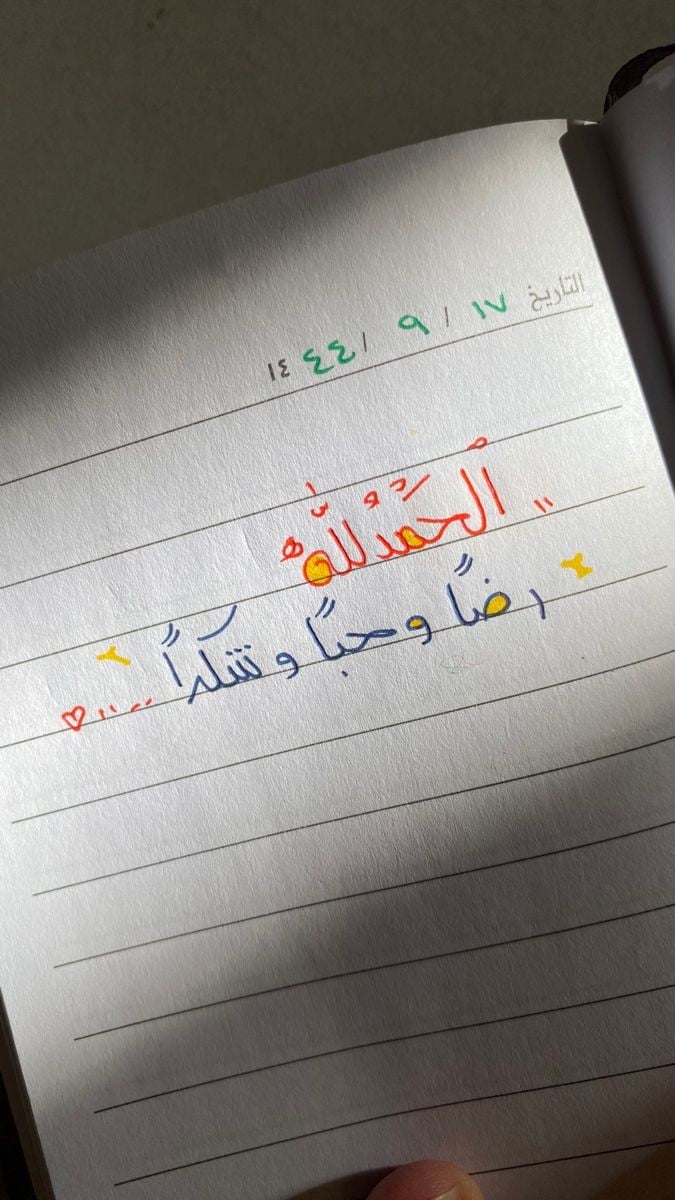 التاريخ ١٧ / ٩ / ١٤٤٤
" الحَمْدُ للّٰه
رضاً و حباً و شكراً .. " ♡